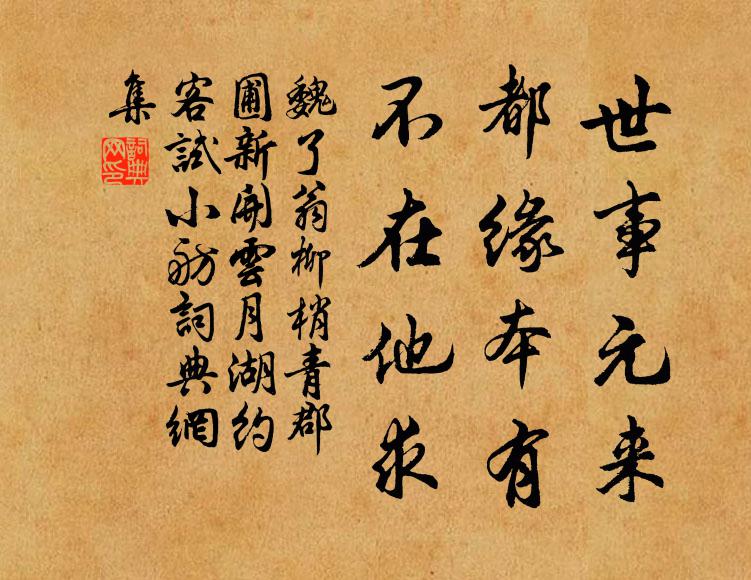 世事元来
都缘本有
不在他求
魏了翁柳梢青郡
圃新開雲月湖約
客試小舫詞典網
集
詞典网印